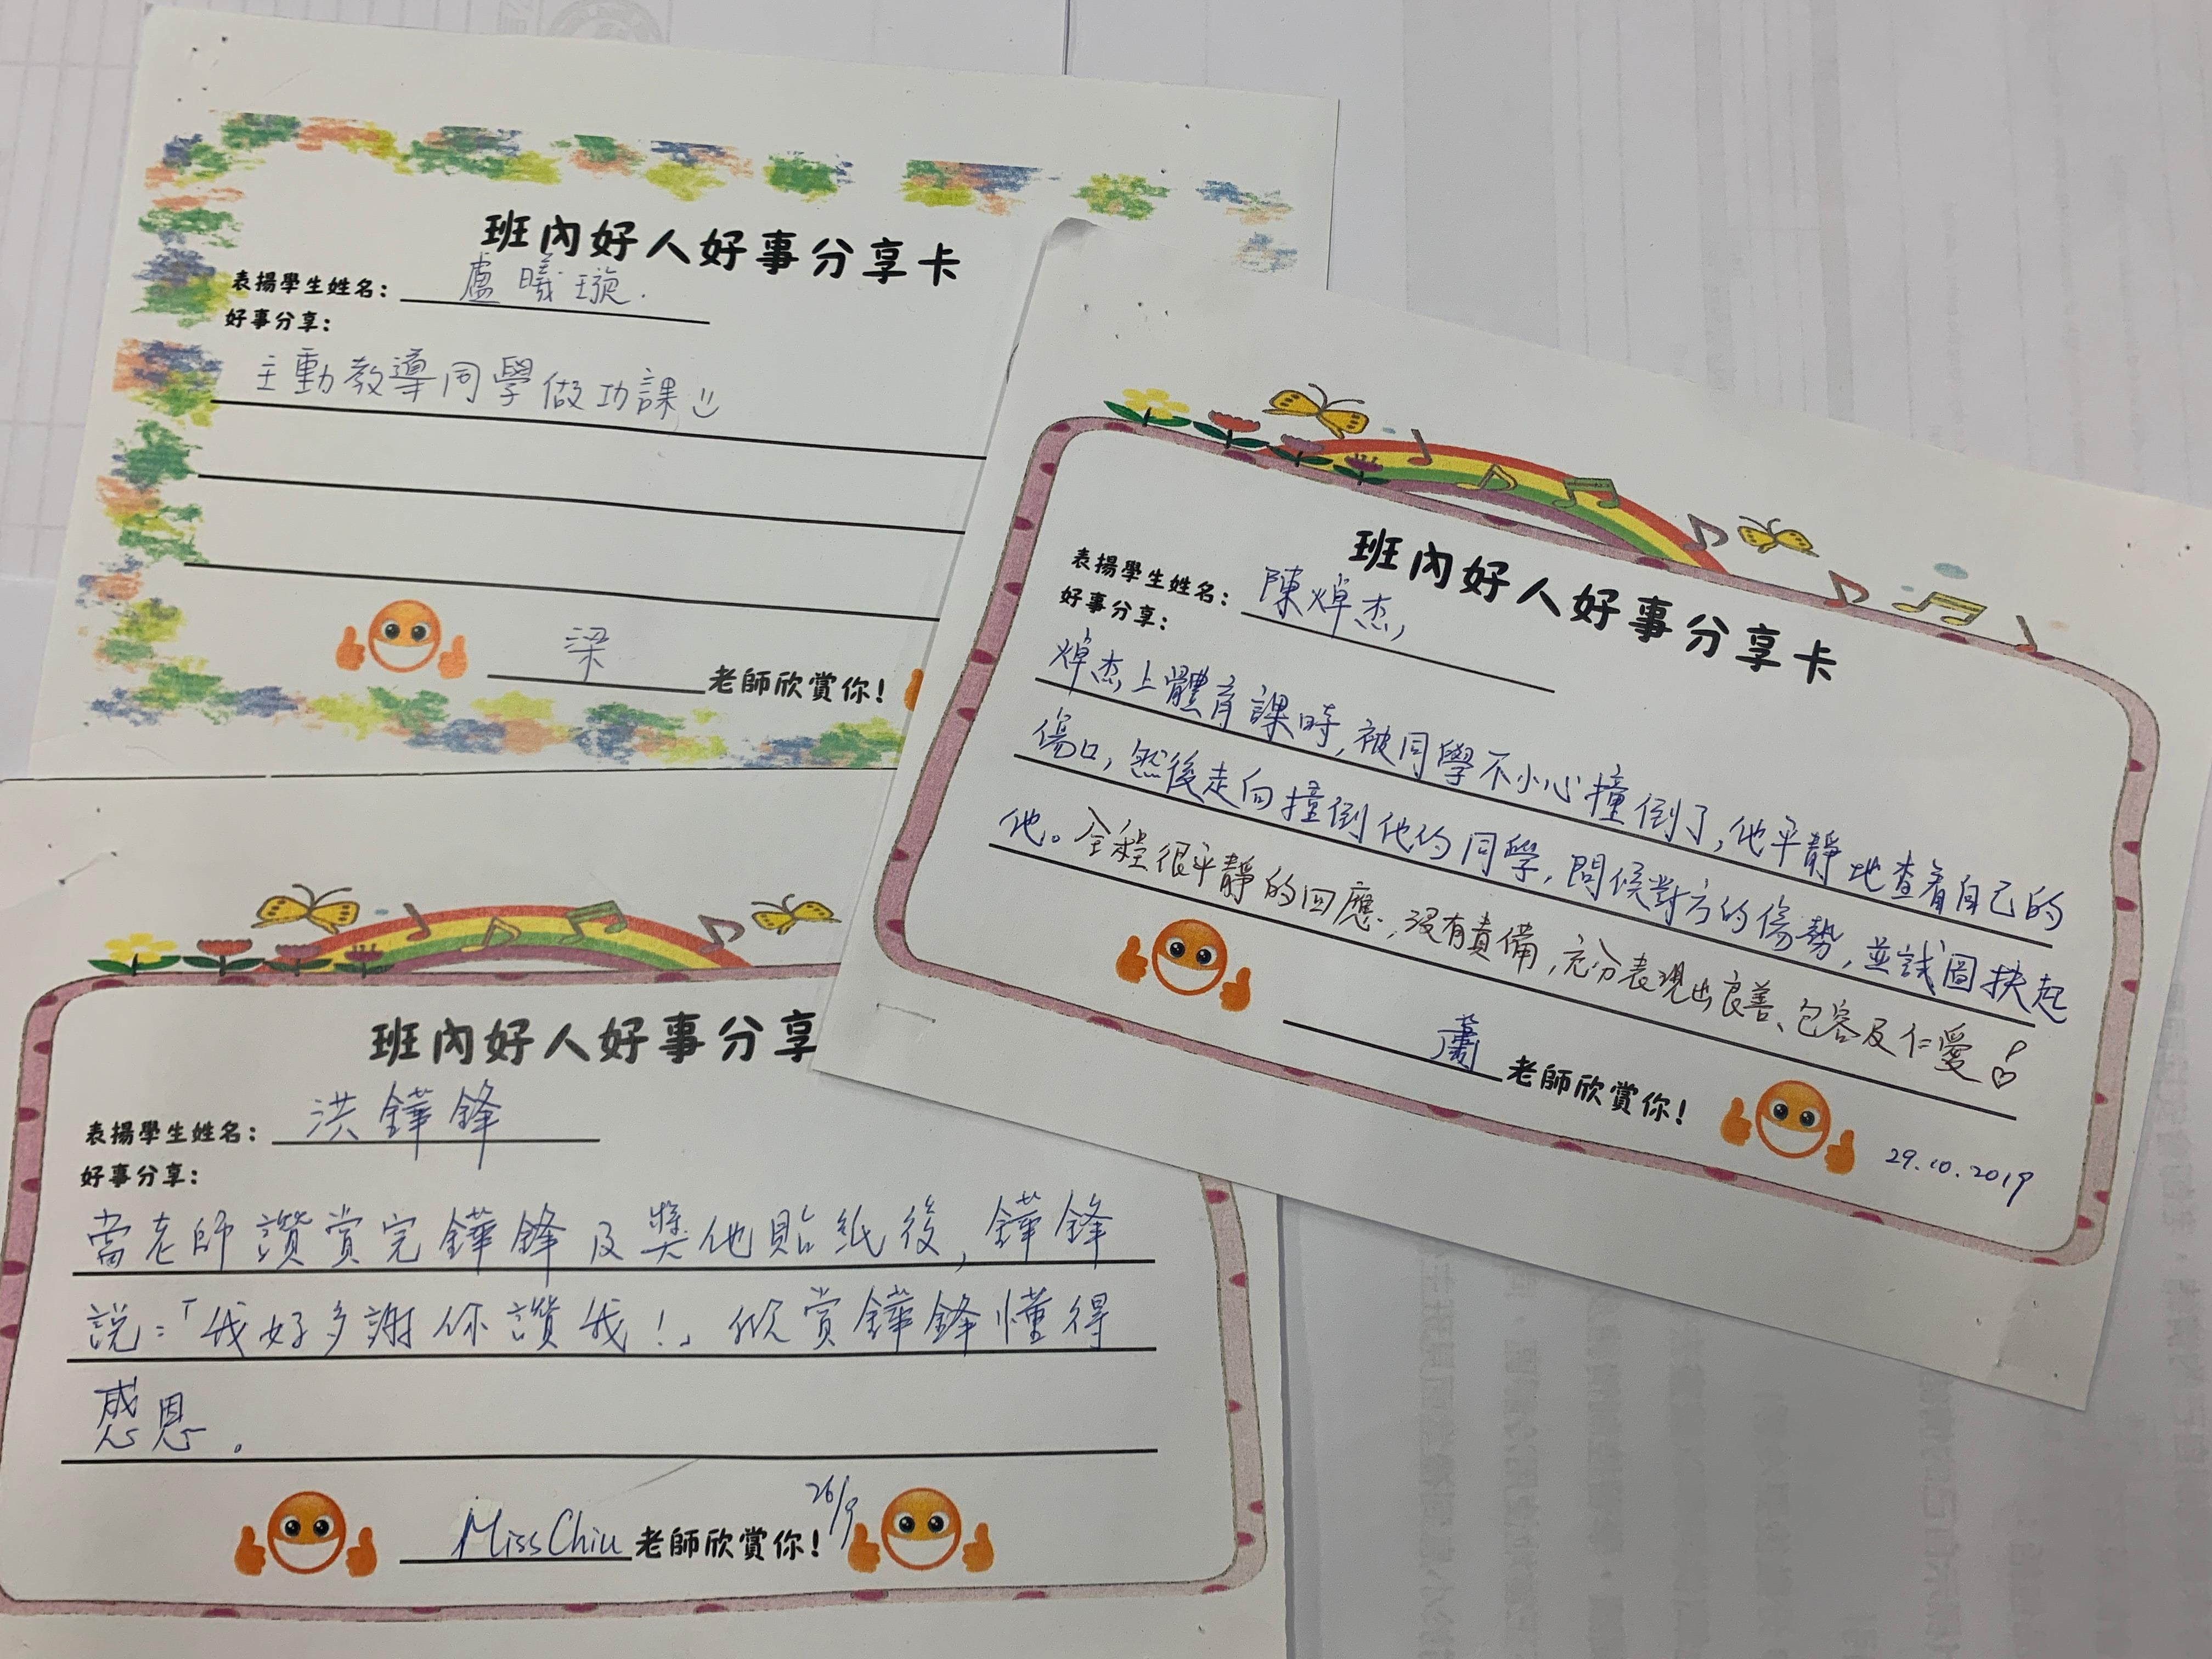 班內好人好事分享卡
表揚學生姓名： 盧曦璇.
好事分享：
主動教導同學做功課
梁 老師欣賞你！
班內好人好事分享卡
表揚學生姓名： 陳焯杰
好事分享：
焯杰上體育課時，被同學不小心撞倒了，他平靜地查看自己的
傷口，然後走向撞倒他的同學，問候對方的傷勢，並試圖扶起
他。全程很平靜的回應，沒有責備，充分表現出良善、包容及仁愛！
蕭 老師欣賞你！
29.10.2019
班內好人好事分享
表揚學生姓名： 洪鏵鋒
好事分享：
當老師讚賞完鏵鋒及獎他貼紙後，鏵鋒
說：「我好多謝你讚我！」欣賞鏵鋒懂得
感恩。
Miss Chiu 老師欣賞你！ 26/9